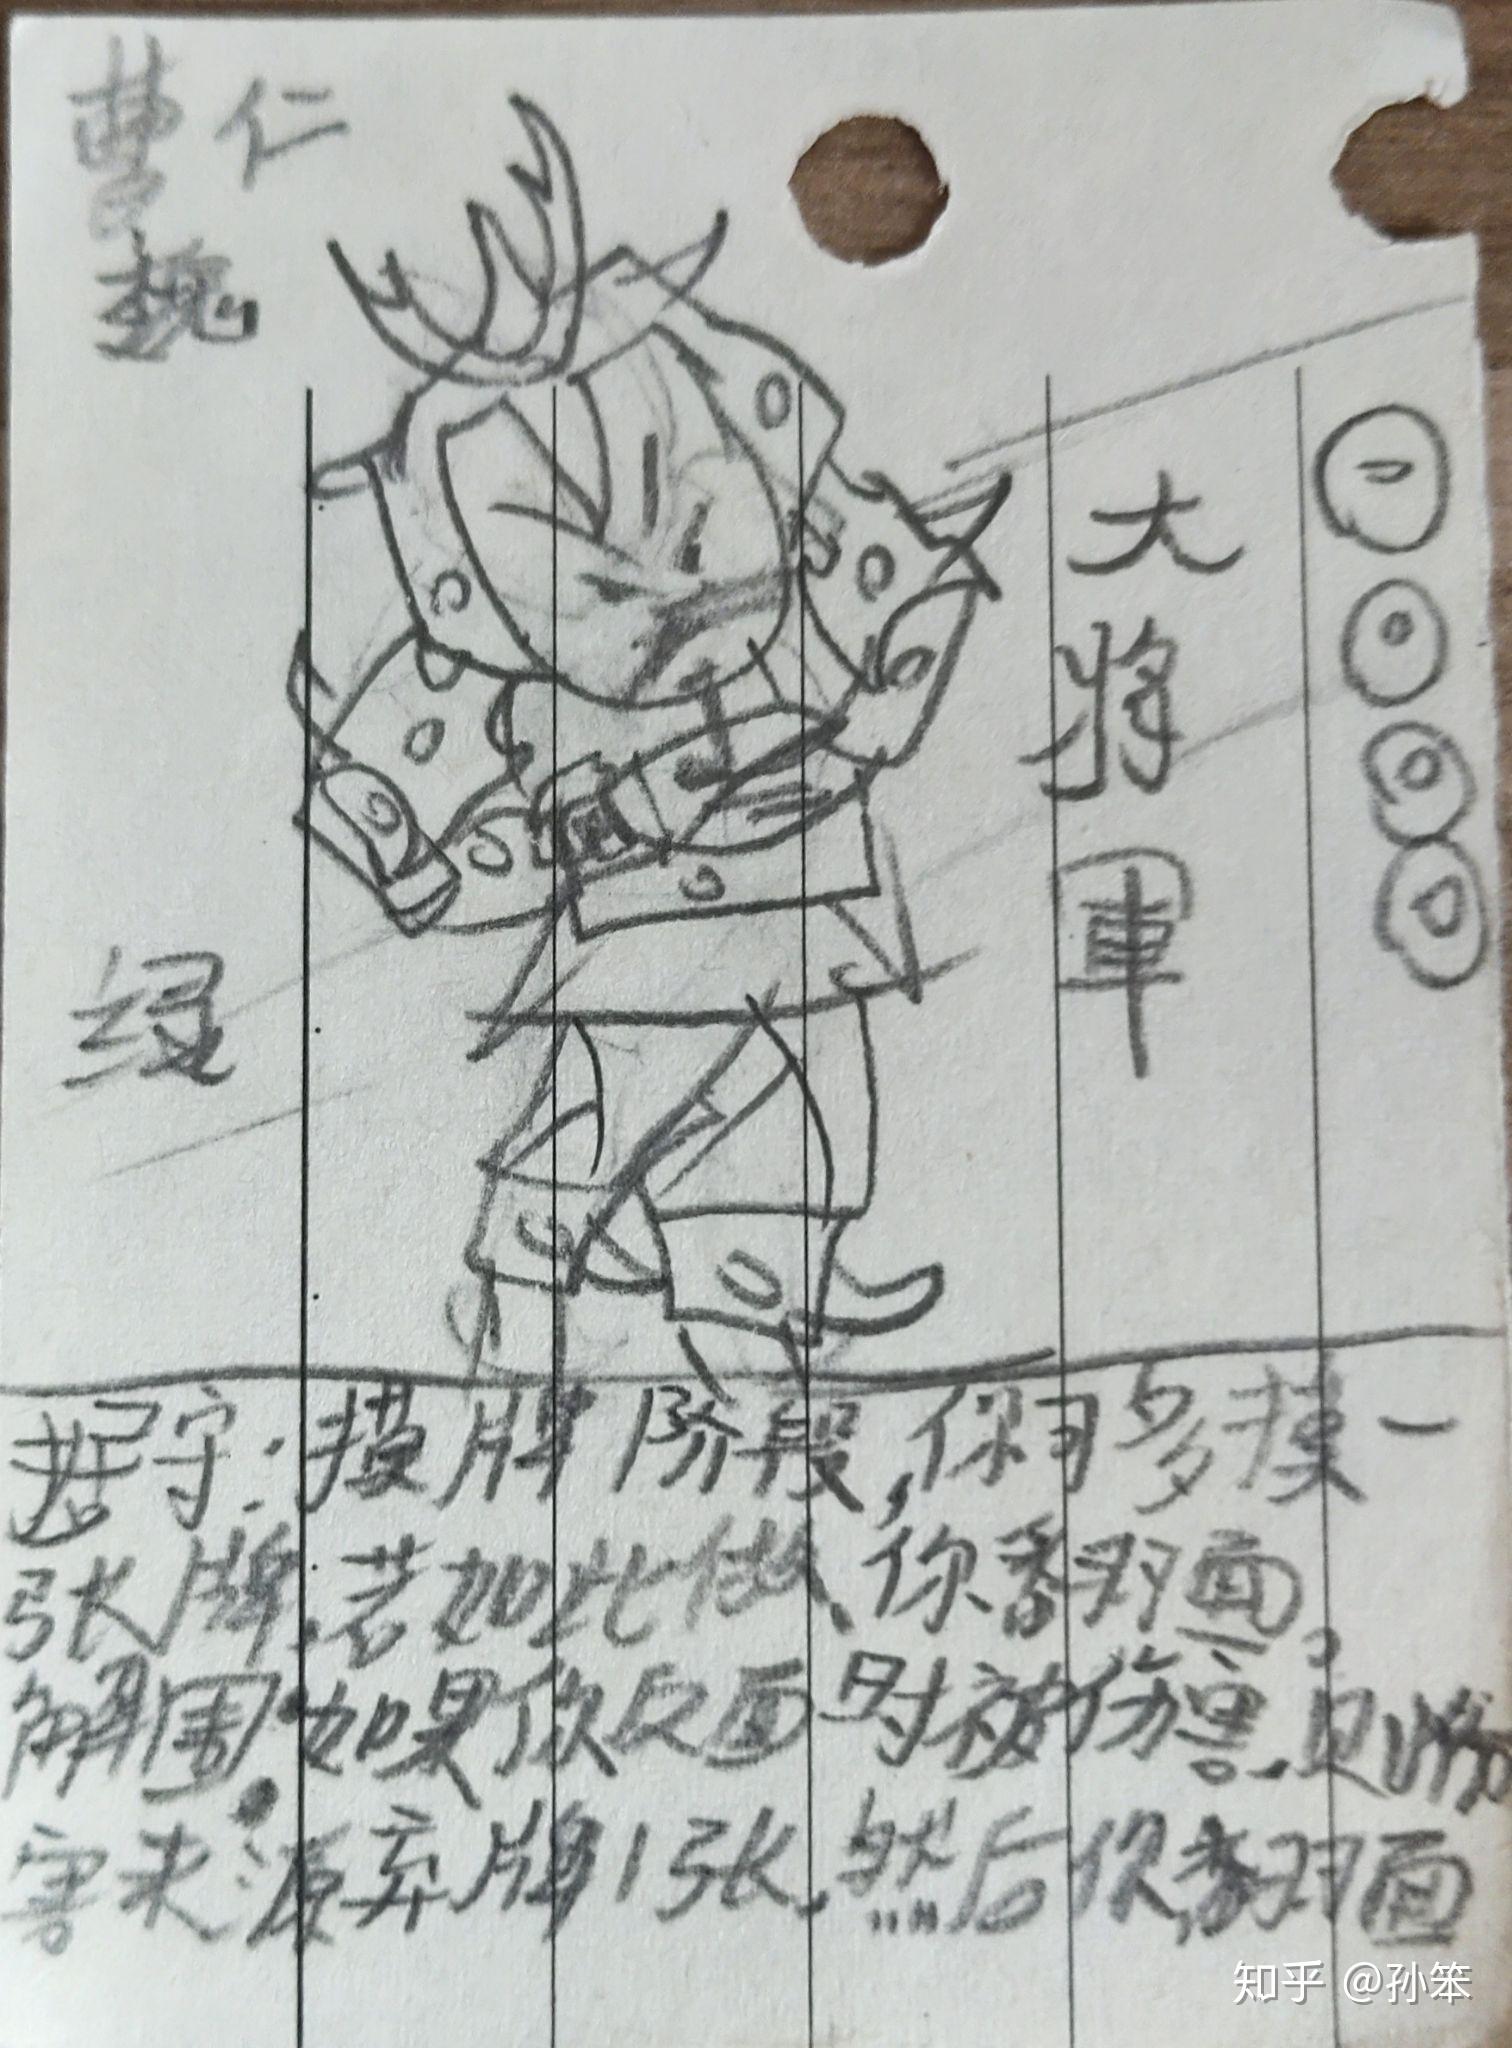 曹仁
魏
大将軍
绿
据守:摸牌阶段,你可多摸一
张牌.若如此做、你翻面。
解围:如果你反面时被伤害.则伤
害来源弃牌1张,然后你翻面
知乎 @孙笨